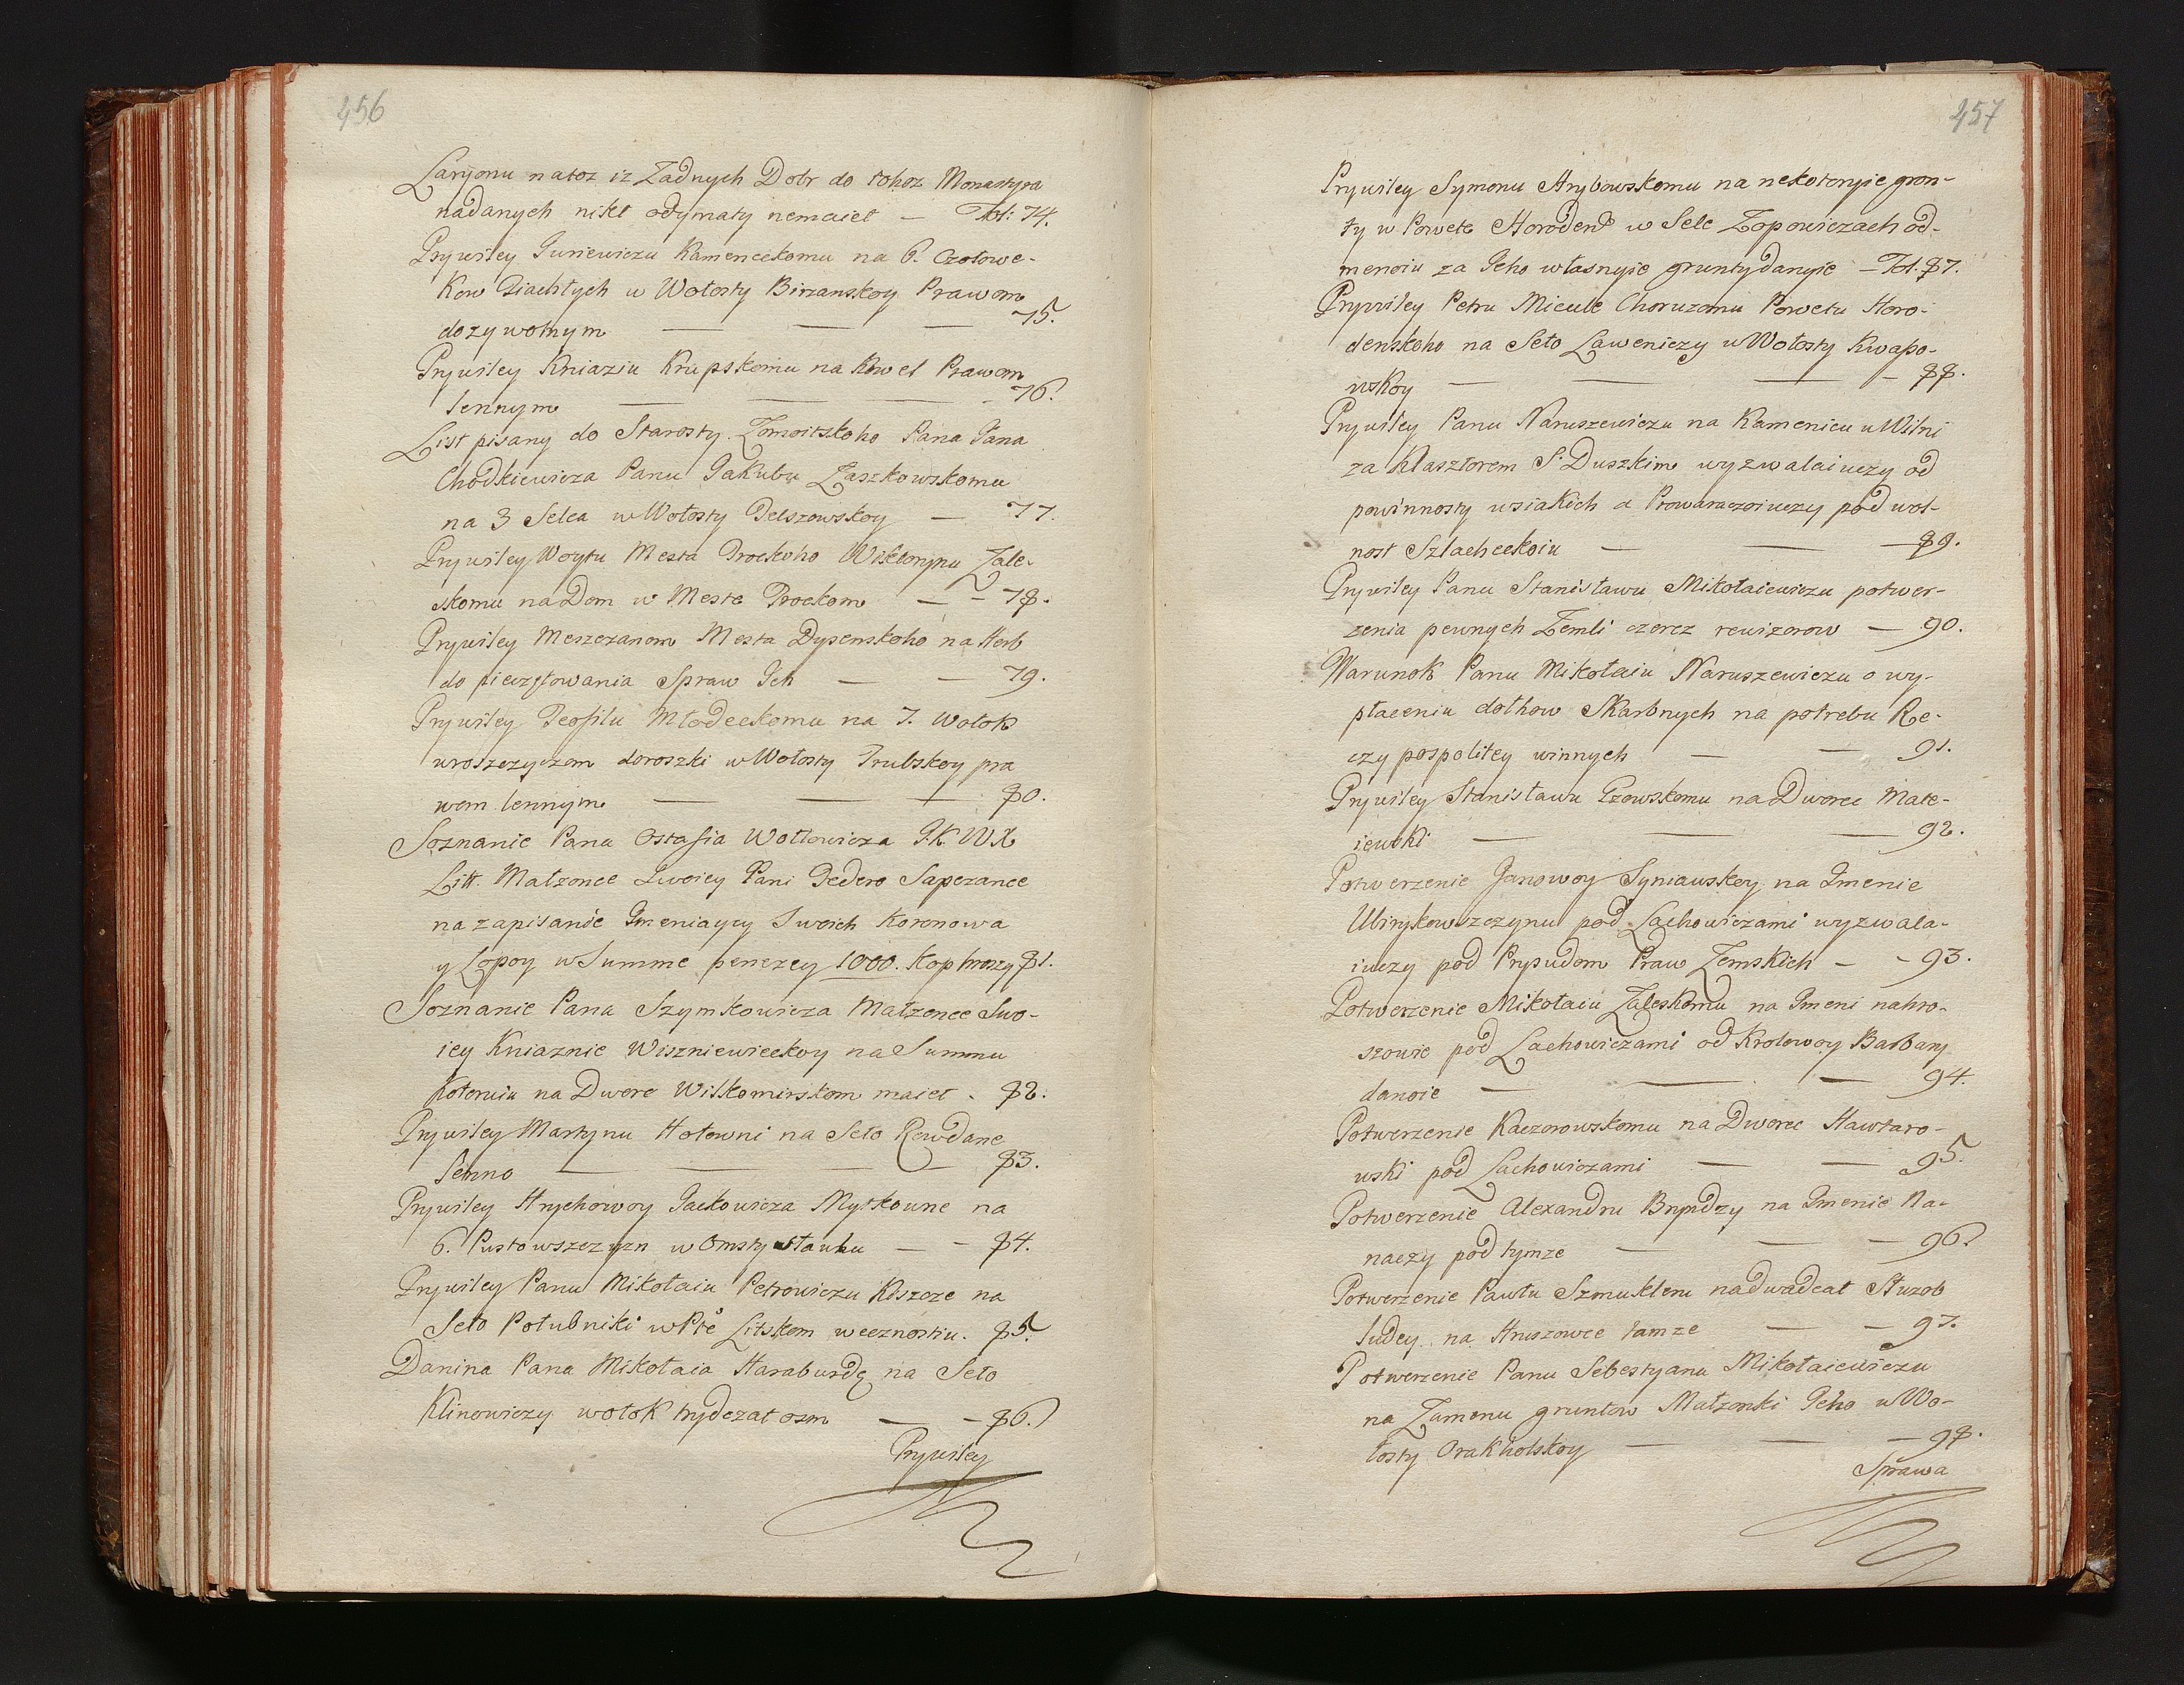 456
Laryonu natoz iz Zadnych Dobr do tohoz Monastyra
nadanych nikt odymaty nemaiet — Fol: 74.
Prywiley Juriewiczu Kameneckomu na 6. Czołowe-
kow Ziachłych w Wołosty Birzanskoy Prawom
dozywotnym — — — 75.
Prywiley Kniaziu Krupskomu na Kowel Prawom
lennym — — — 76.
List pisany do Starosty Zomoitskoho Pana Jana
Chodkiewicza Panu Jakubu Laszkowskomu
na 3 Selca w Wołosty Telszowskoy — 77.
Prywiley Woytu Mesta Trockoho Wiktorynu Zale-
skomu na Dom w Meste Trockom — - 78.
Prywiley Meszczanom Mesta Dysenskoho na Herb
do pieczętowania Spraw Ich — — 79.
Prywiley Teofilu Młodeckomu na 7. Wołok
uroszczyczem doroszki w Wołosty Trubskoy pra
wem lennym — — — 80.
Soznanie Pana Ostafia Wołłowicza P.K. WX
Litt. Małzonce Swoiey Pani Fedoro Sapezance
na zapisanie Imeniacy Swoich Koronowa
y Łopoy w Summe penezey 1000. Kop hroszy 81.
Soznanie Pana Szymkowicza Małzonce Swo-
iey Kniaznie Wiszniewieckoy na Summu
Kotoruiu na Dwore Wilkomirskom maiet . 82.
Prywiley Martynu Hołowni na Seło Rewdane
lenno — — — 83.
Prywiley Hrychowoy Jackowicza Mytkowne na
6. Pustowszczyzn w Omstysławlu — - 84.
Prywiley Panu Mikołaiu Petrowiczu Kiszcze na
Seło Połubniki w Pte Litskom wecznostiu. 85.
Danina Pana Mikołaia Haraburdę na Seło
Klinowiczy wołok trydczat osm — - 86.
Prywiley
457
Prywiley Symonu Hrybowskomu na nekotoryie gron-
ty w Powete Horoden. w Sele Zopowiczach od-
menoiu za Jeho własnyie grunty danyie — Fol. 87.
Prywiley Petru Micule Choruzomu Powetu Horo-
denskoho na Seło Laweniczy u Wołosty Kwaso-
wskoy — — — - 88.
Prywiley Panu Naruszewiczu na Kamenicu u Wilni
za Klasztorem S. Duszkim wyzwalaiuczy od
powinnosty wsiakich a Prowaraczoiuczy pod wol-
nost Szlacheckoiu — — — 89.
Prywiley Panu Stanisławu Mikołaiewiczu potwer-
zenia pewnych Zemli czerez rewizorow — 90.
Warunok Panu Mikołaiu Naruszewiczu o wy-
płaceniu dołhow Skarbnych na potrebu Re-
czy pospolitey winnych — — 91.
Prywiley Stanisławu Gzowskomu na Dworec Mate-
iewski — — — 92.
Potwerzenie Janowoy Syniauskoy na Imenie
Ulinykowszczynu pod Lachowiczami wyzwala-
iuczy pod Prysudom Praw Zemskich — - 93.
Potwerzenie Mikołaiu Zaleskomu na Imeni nahro-
szowie pod Lachowiczami od Krolowoy Barbary
danoie — — — 94.
Potwerzenie Kaczorowskomu na Dworec Hawtaro-
wski pod Lachowiczami — — 95.
Potwerzenie Alexandru Bryndzy na Imenie Na-
naczy pod tymze — — — 96.
Potwerzenie Pawłu Szmukleru na dwadcat Słuzob
ludey na Hruszowce tamze — — 97.
Potwerzenie Panu Sebestyanu Mikołaiewiczu
na Zamonu gruntow Małzonki Jeho u Wo-
łosty Orakholskoy — — — 98.
Sprawa